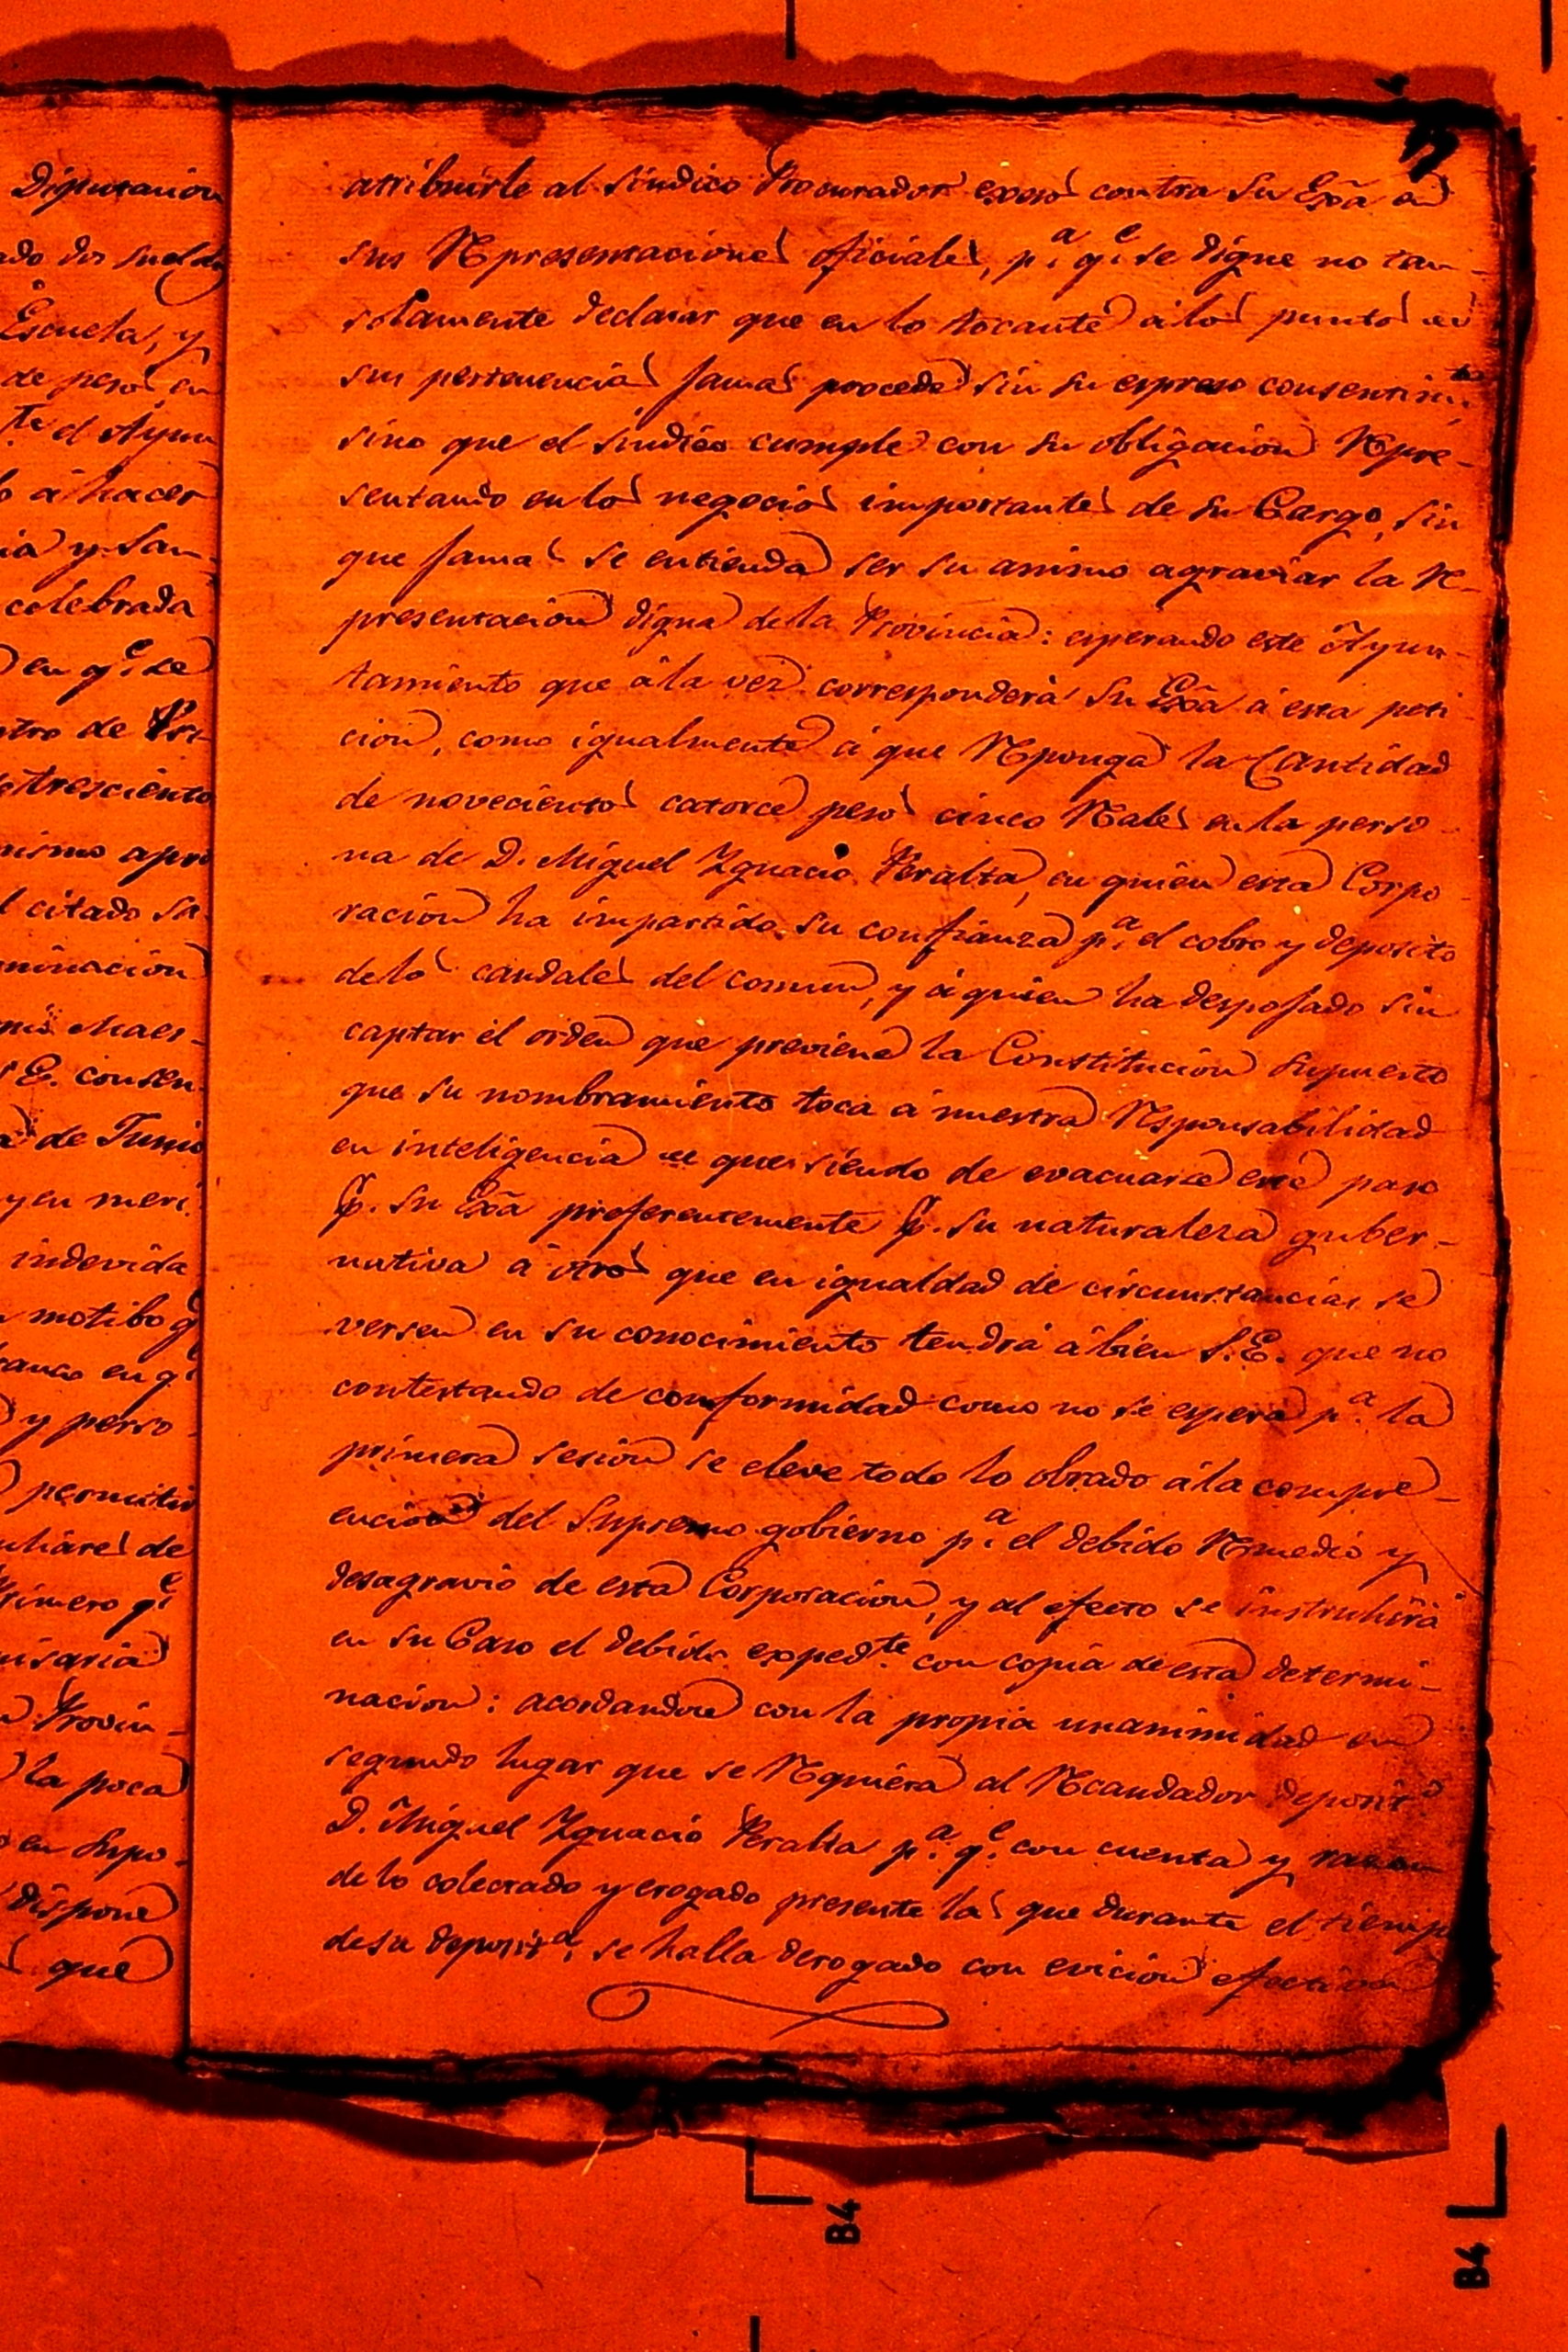 Diputacion
ado dos sueldo
Escuela, y
de pesos en
te el Ayun
o á hacer
ia y San
celebrada
en q.e se
ntro de
trescientos
mismo apro
l citado Sa
minacion
Maes-
S.E. consen-
de Junio
y en meri
indevida
motibo q
en q.e
y perso
permitir
de
Primero q.e
Provin-
la poca
en Supo-
dispone
que
atribuirle al Sindico Procurador exeso contra Su Exã en
sus Representaciones oficiales, p.a q.e se digne no tan-
solamente declarar que en lo tocante á los puntos de
sus pertenencias jamas procede sin su expreso consentim.to
sino que el sindico cumple con su obligacion Repre-
sentando en los negocios importantes de su Cargo, sin
que jamas se entienda ser su animo agraviar la Re-
presentacion digna de la Provincia: esperando este Ayun-
tamiento que á la vez corresponderá Su Exã á esta peti
cion, como igualmente á que Reponga la Cantidad
de novecientos catorce pesos cinco Reales en la perso-
na de D. Miguel Ygnacio Peralta, en quien esta Corpo
racion ha impartido su confianza p.a el cobro y deposito
de los caudales del comun, y á quien ha despojado sin
captar el orden que previene la Constitucion supuesto
que su nombramiento toca á nuestra Responsabilidad
en inteligencia de que siendo de evacuarse este paso
p. Su Exã preferentemente p. su naturaleza guber-
nativa á otros que en igualdad de circunstancias se
versen en su conocimiento tendrá á bien S.E. que no
contestando de conformidad como no se espera p.a la
primera sesion se eleve todo lo obrado á la compre-
encion del Supremo gobierno p.a el debido Remedio y
desagravio de esta Corporacion, y al efecto se instruhirá
en su Caso el debido exped.te con copia de esta determi-
nacion: acordandose con la propia unanimidad en
segundo lugar que se Requiera al Recaudador deposit.o
D. Miguel Ygnacio Peralta p.a q.e con cuenta y razon
de lo colectado y erogado presente las que durante el tiempo
de su deposit.a se halla derogado con evicion efectiva
B4
B4